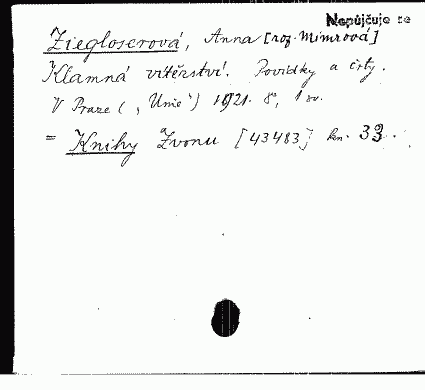 Nepůjčuje se
Ziegloserová, Anna [roz. Mimrová]
Klamná vítězství. Povídky a črty.
V Praze („Unie“) 1921. 8°, 1 sv.
= Knihy Zvonu [43483] kn. 33.